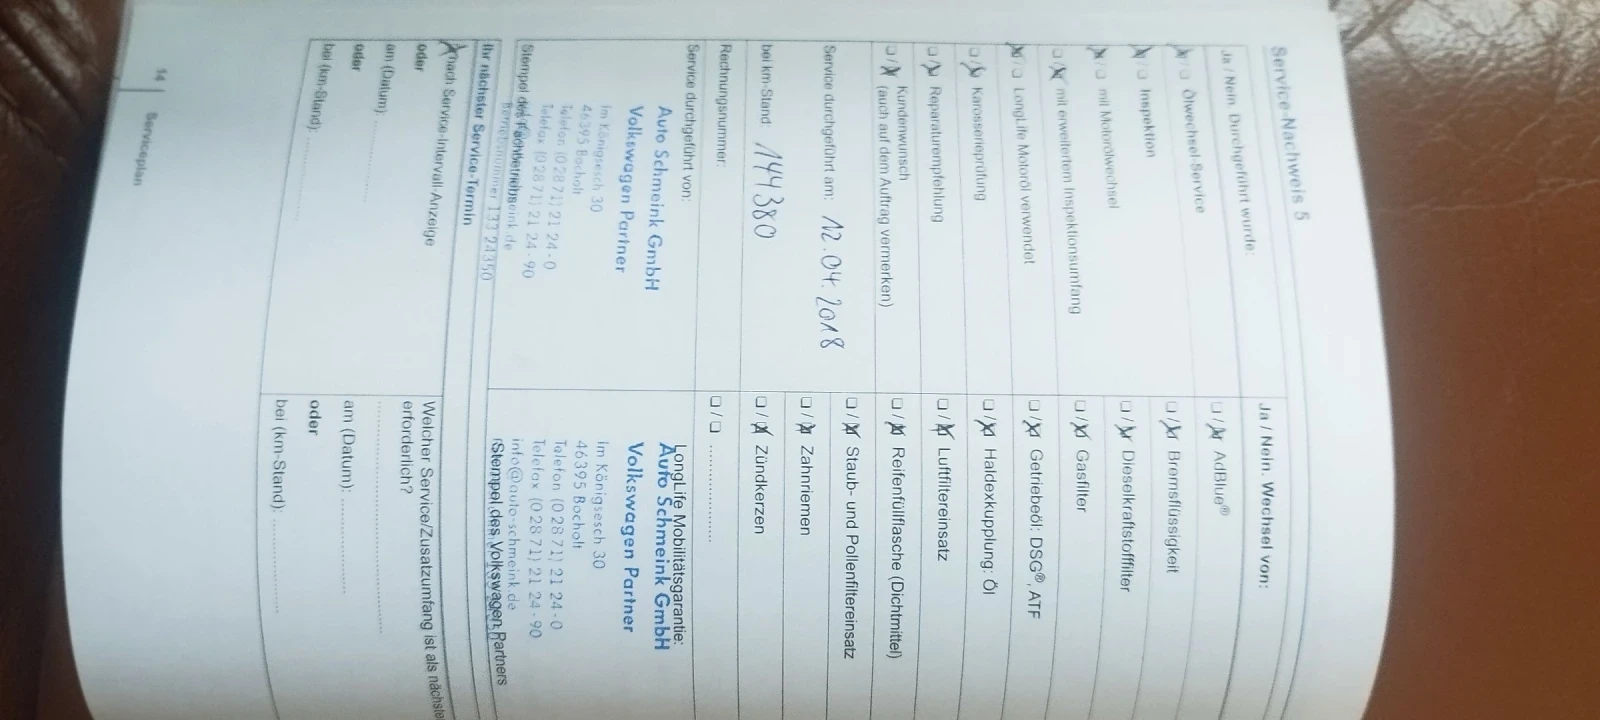 Service-Nachweis 5
Ja / Nein. Durchgeführt wurde:
☒ / ☐ Ölwechsel-Service
☒ / ☐ Inspektion
☒ / ☐ mit Motorölwechsel
☐ / ☒ mit erweitertem Inspektionsumfang
☒ / ☐ LongLife Motoröl verwendet
☐ / ☒ Karosserieprüfung
☐ / ☒ Reparaturempfehlung
☐ / ☒ Kundenwunsch
(auch auf dem Auftrag vermerken)
Service durchgeführt am: 12.04.2018
bei km-Stand: 144380
Rechnungsnummer:
Service durchgeführt von:
Auto Schmeink GmbH
Volkswagen Partner
Im Königsesch 30
46395 Bocholt
Telefon (0 28 71) 21 24-0
Telefax (0 28 71) 21 24-90
Stempel des Fachbetriebs
Betriebsnummer 133 24350
Ihr nächster Service-Termin
☒ nach Service-Intervall-Anzeige
oder
am (Datum): ....................
oder
bei (km-Stand): ....................
Ja / Nein. Wechsel von:
☐ / ☒ AdBlue®
☐ / ☒ Bremsflüssigkeit
☐ / ☒ Dieselkraftstofffilter
☐ / ☒ Gasfilter
☐ / ☒ Getriebeöl: DSG®, ATF
☐ / ☒ Haldexkupplung: Öl
☐ / ☒ Luftfiltereinsatz
☐ / ☒ Reifenfüllflasche (Dichtmittel)
☐ / ☒ Staub- und Pollenfiltereinsatz
☐ / ☒ Zahnriemen
☐ / ☒ Zündkerzen
☐ / ☐ ....................
LongLife Mobilitätsgarantie:
Auto Schmeink GmbH
Volkswagen Partner
Im Königsesch 30
46395 Bocholt
Telefon (0 28 71) 21 24-0
Telefax (0 28 71) 21 24-90
info@auto-schmeink.de
(Stempel des Volkswagen Partners
Welcher Service/Zusatzumfang ist als nächster
erforderlich?
........................................
am (Datum): ....................
oder
bei (km-Stand): ....................
14
Serviceplan